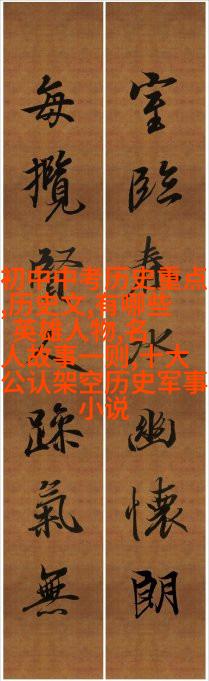 室臨春水幽懷朗
每攬賢躁氣無
初中中考历史重点
,历史文,有哪些
英雄人物,名
人故事一则,十大
公认架空历史军事
小说